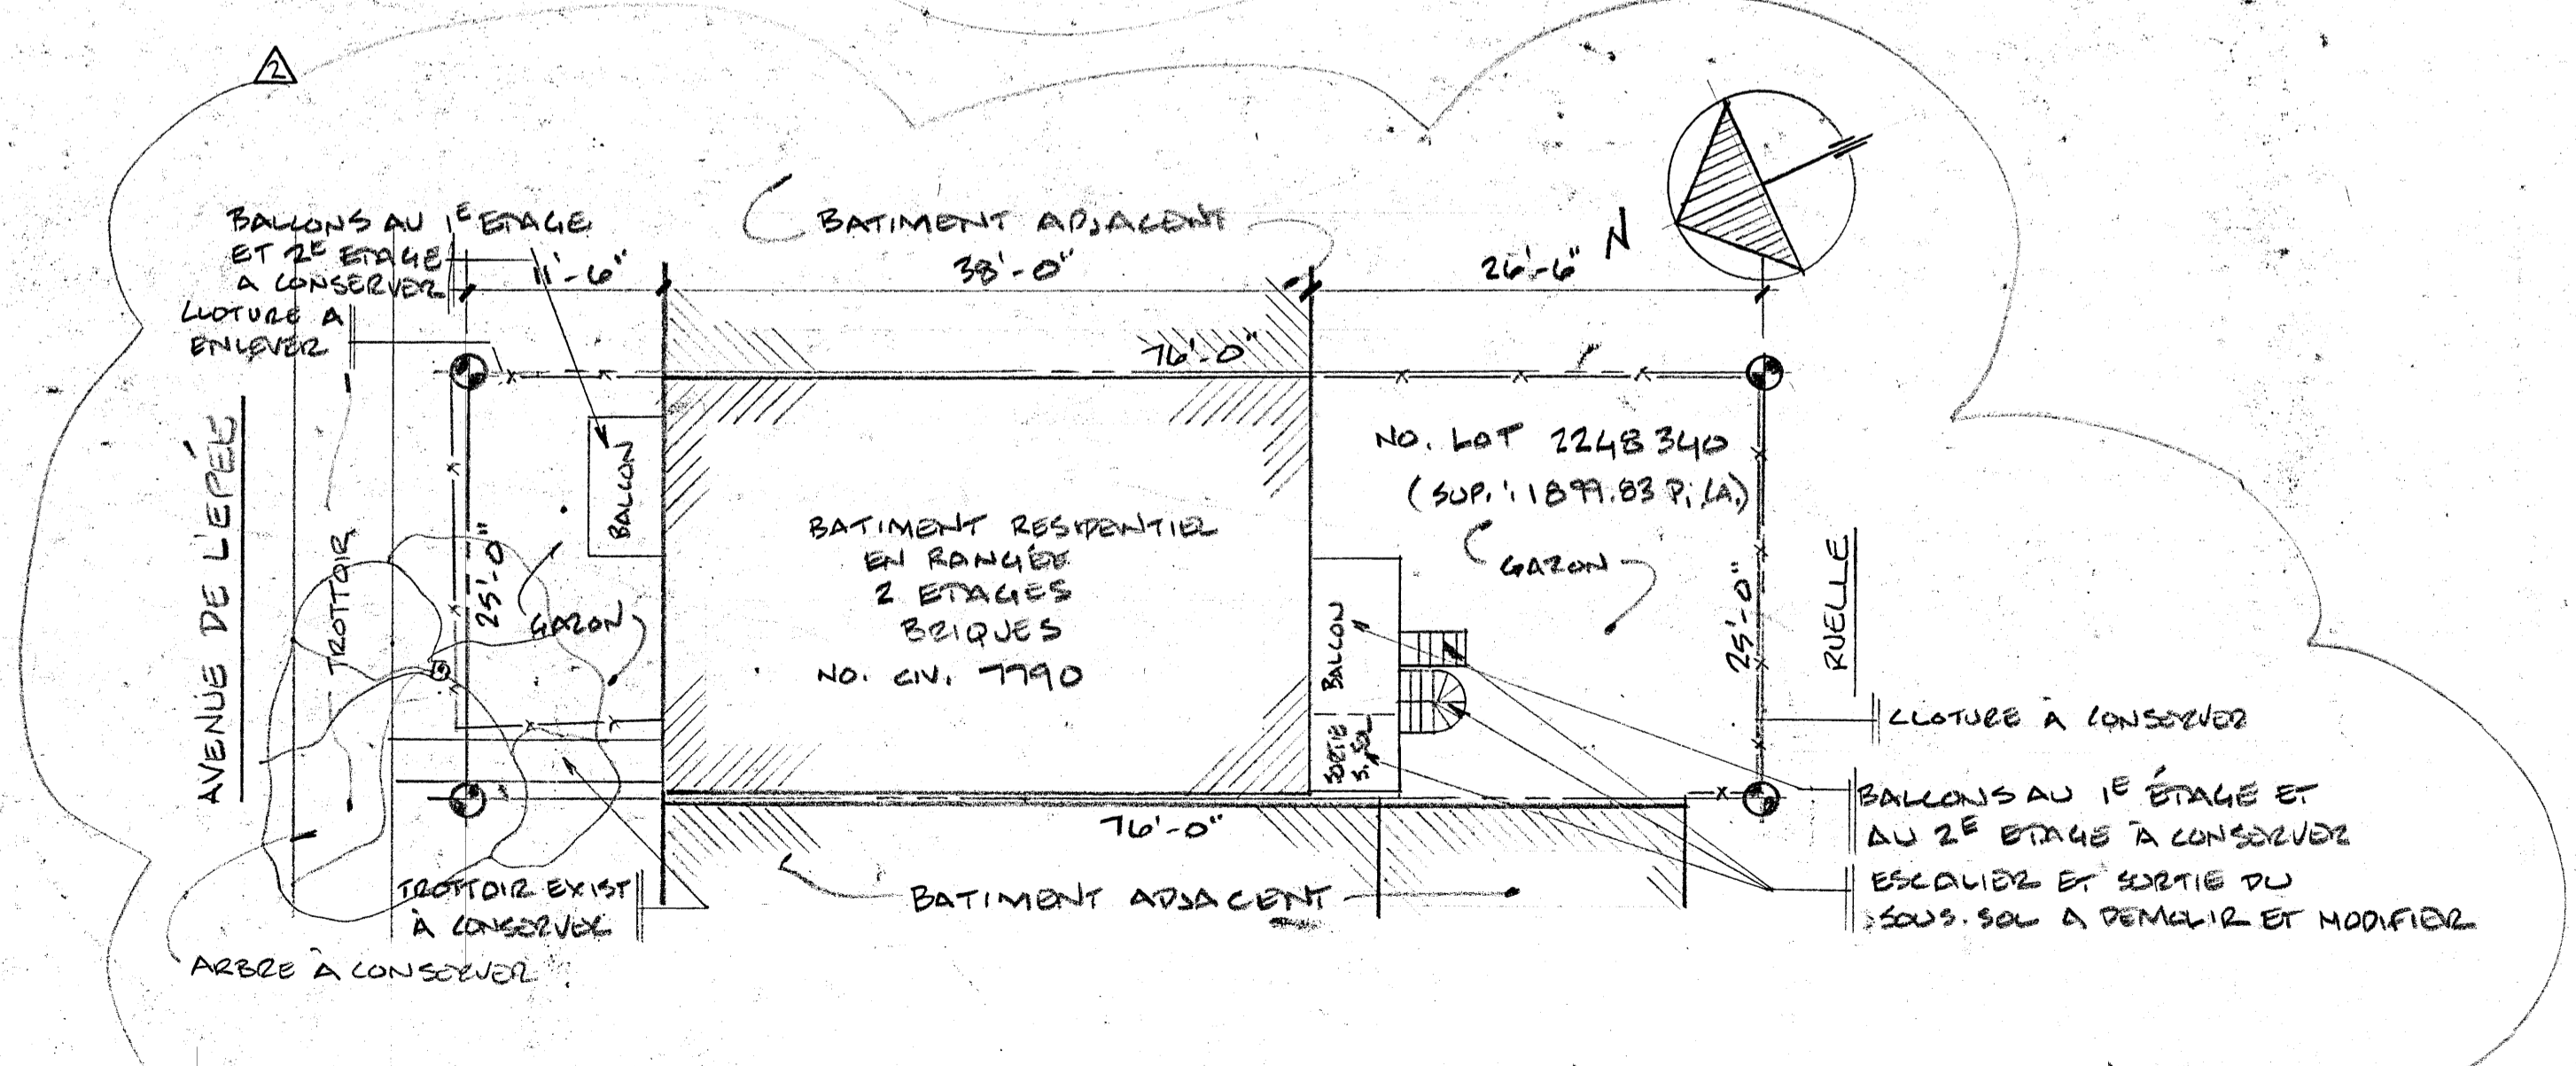 2
BALCONS AU 1E ETAGE
ET 2E ETAGE
A CONSERVER
CLOTURE A
ENLEVER
11'-6"
BATIMENT ADJACENT
38'-0"
26'-6"
N
76'-0"
AVENUE DE L'EPÉE
TROTTOIR
25'-0"
BALCON
GAZON
BATIMENT RESIDENTIEL
EN RANGÉE
2 ETAGES
BRIQUES
NO. CIV. 7790
NO. LOT 2248340
(SUP. : 1899.83 Pi.(A.)
GAZON
BALCON
SORTIE
S. SOL
25'-0"
RUELLE
CLOTURE À CONSERVER
BALCONS AU 1E ÉTAGE ET
AU 2E ETAGE À CONSERVER
ESCALIER ET SORTIE DU
SOUS.SOL A DEMOLIR ET MODIFIER
76'-0"
BATIMENT ADJACENT
TROTTOIR EXIST
À CONSERVER
ARBRE À CONSERVER